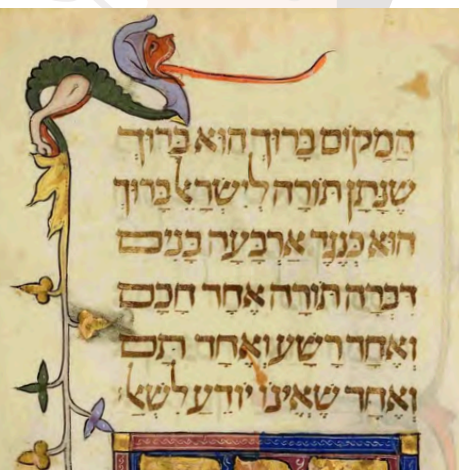 הַמָּקוֹם בָּרוּךְ הוּא בָּרוּךְ
שֶׁנָּתַן תּוֹרָה לְיִשְׂרָאֵל בָּרוּךְ
הוּא כְּנֶגֶד אַרְבָּעָה בָנִים
דִּבְּרָה תוֹרָה אֶחָד חָכָם
וְאֶחָד רָשָׁע וְאֶחָד תָּם
וְאֶחָד שֶׁאֵינוֹ יוֹדֵעַ לִשְׁאַל